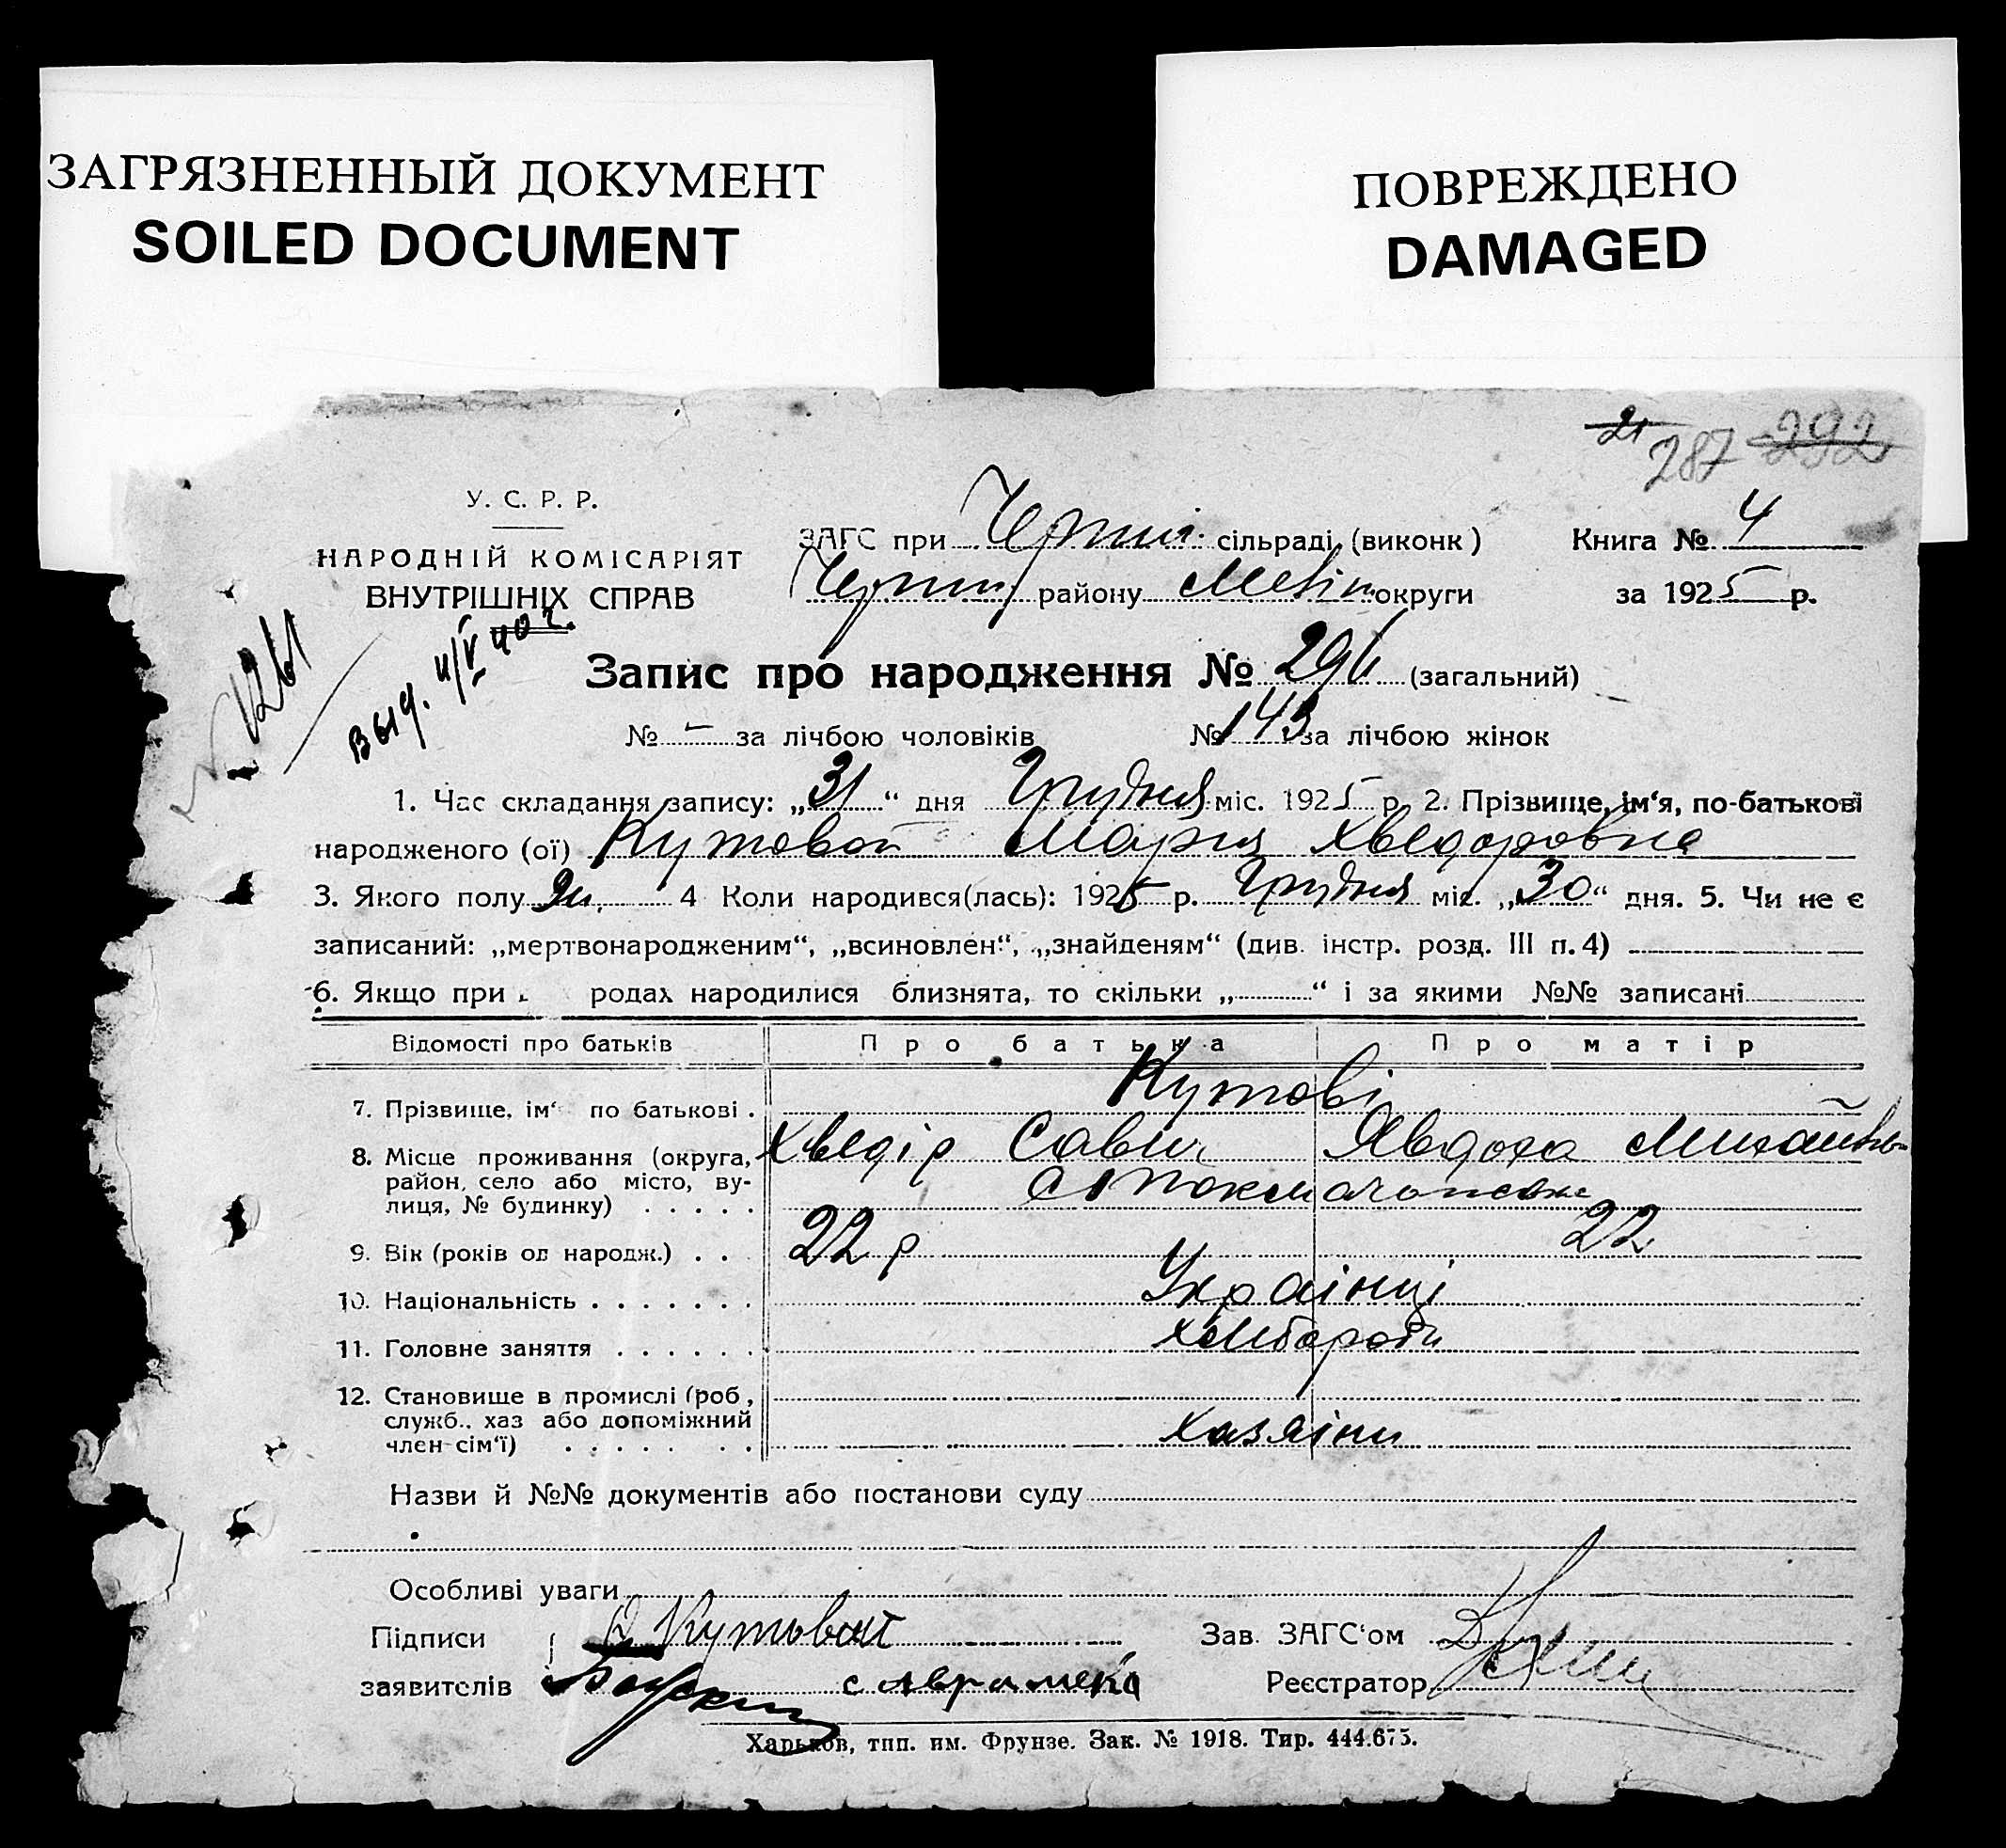 ЗАГРЯЗНЕННЫЙ ДОКУМЕНТ
SOILED DOCUMENT
ПОВРЕЖДЕНО
DAMAGED
21 287 292
У. С. Р. Р.
НАРОДНІЙ КОМІСАРІЯТ
ВНУТРІШНІХ СПРАВ
ЗАГС при сільраді (виконк)
району округи
Книга № 4
за 1925 р.
1261
выд.
Запис про народження № 296 (загальний)
№ - за лічбою чоловіків № 143 за лічбою жінок
1. Час складання запису: „31“ дня Грудня міс. 1925 р 2. Прізвище, ім‘я, по-батькові
народженого (ої) Кутовой Мария Хведоровна
3. Якого полу ж. 4 Коли народився(лась): 1925 р. Грудня міс. „30“ дня. 5. Чи не є
записаний: „мертвонародженим“, „всиновлен“, „знайденям“ (див. інстр. розд. III п. 4)
6. Якщо при родах народилися близнята, то скільки „ “ і за якими №№ записані
Відомості про батьків Про батька Про матір
7. Прізвище, ім‘ по батькові . Кутові
Хведір Савич Явдоха
8. Місце проживання (округа,
район, село або місто, ву-
лиця, № будинку) . . . . .
9. Вік (років од народж.) . . 22 р 22
10. Національність . . . . . . . Українці
11. Головне заняття . . . . . . Хлібороби
12. Становище в промислі (роб,
служб., хаз або допоміжний
член сім‘ї) . . . . . . . Хазяіни
Назви й №№ документів або постанови суду
Особливі уваги
Підписи Кутовой Зав. ЗАГС‘ом
заявителів Реєстратор
Харьков, тип. им. Фрунзе. Зак. № 1918. Тир. 444.675.